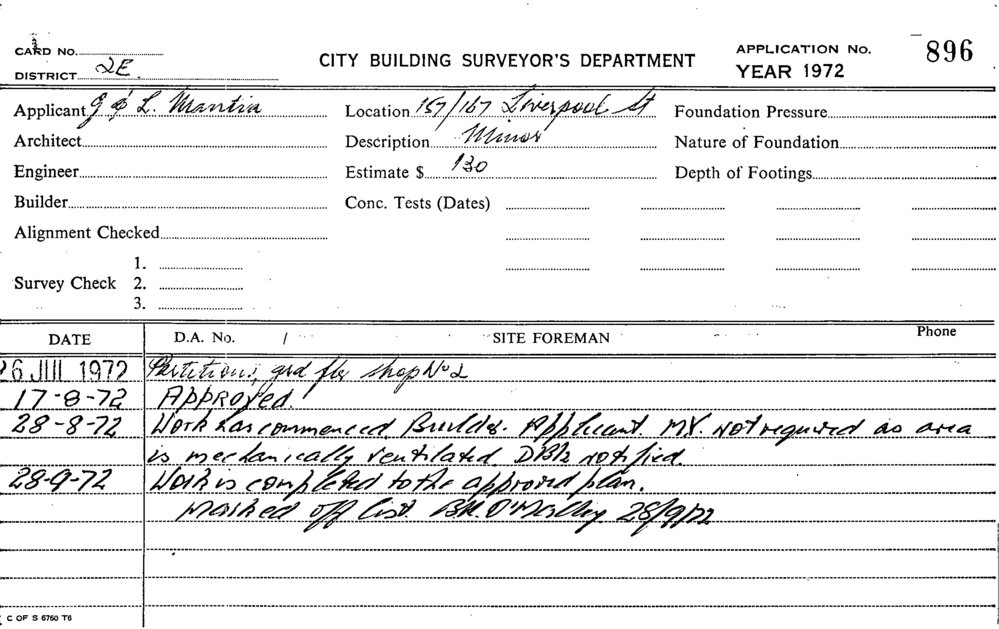 CARD NO.
DISTRICT 2E
CITY BUILDING SURVEYOR'S DEPARTMENT
APPLICATION NO. 896
YEAR 1972
Applicant G & L. Mantia
Location 157/167 Liverpool St
Foundation Pressure
Architect
Description Minor
Nature of Foundation
Engineer
Estimate $ 130
Depth of Footings
Builder
Conc. Tests (Dates)
Alignment Checked
Survey Check 1.
2.
3.
DATE D.A. No. / SITE FOREMAN Phone
26 JUL 1972 Partitions, grd flr shop No 2
17-8-72 Approved.
28-8-72 Work has commenced. Builder. Applicant. MX. not required as area
is mechanically ventilated. notified.
28-9-72 Work is completed to the approved plan.
Marked off list. B.K. O'Malley 28/9/72
C OF S 6760 T6